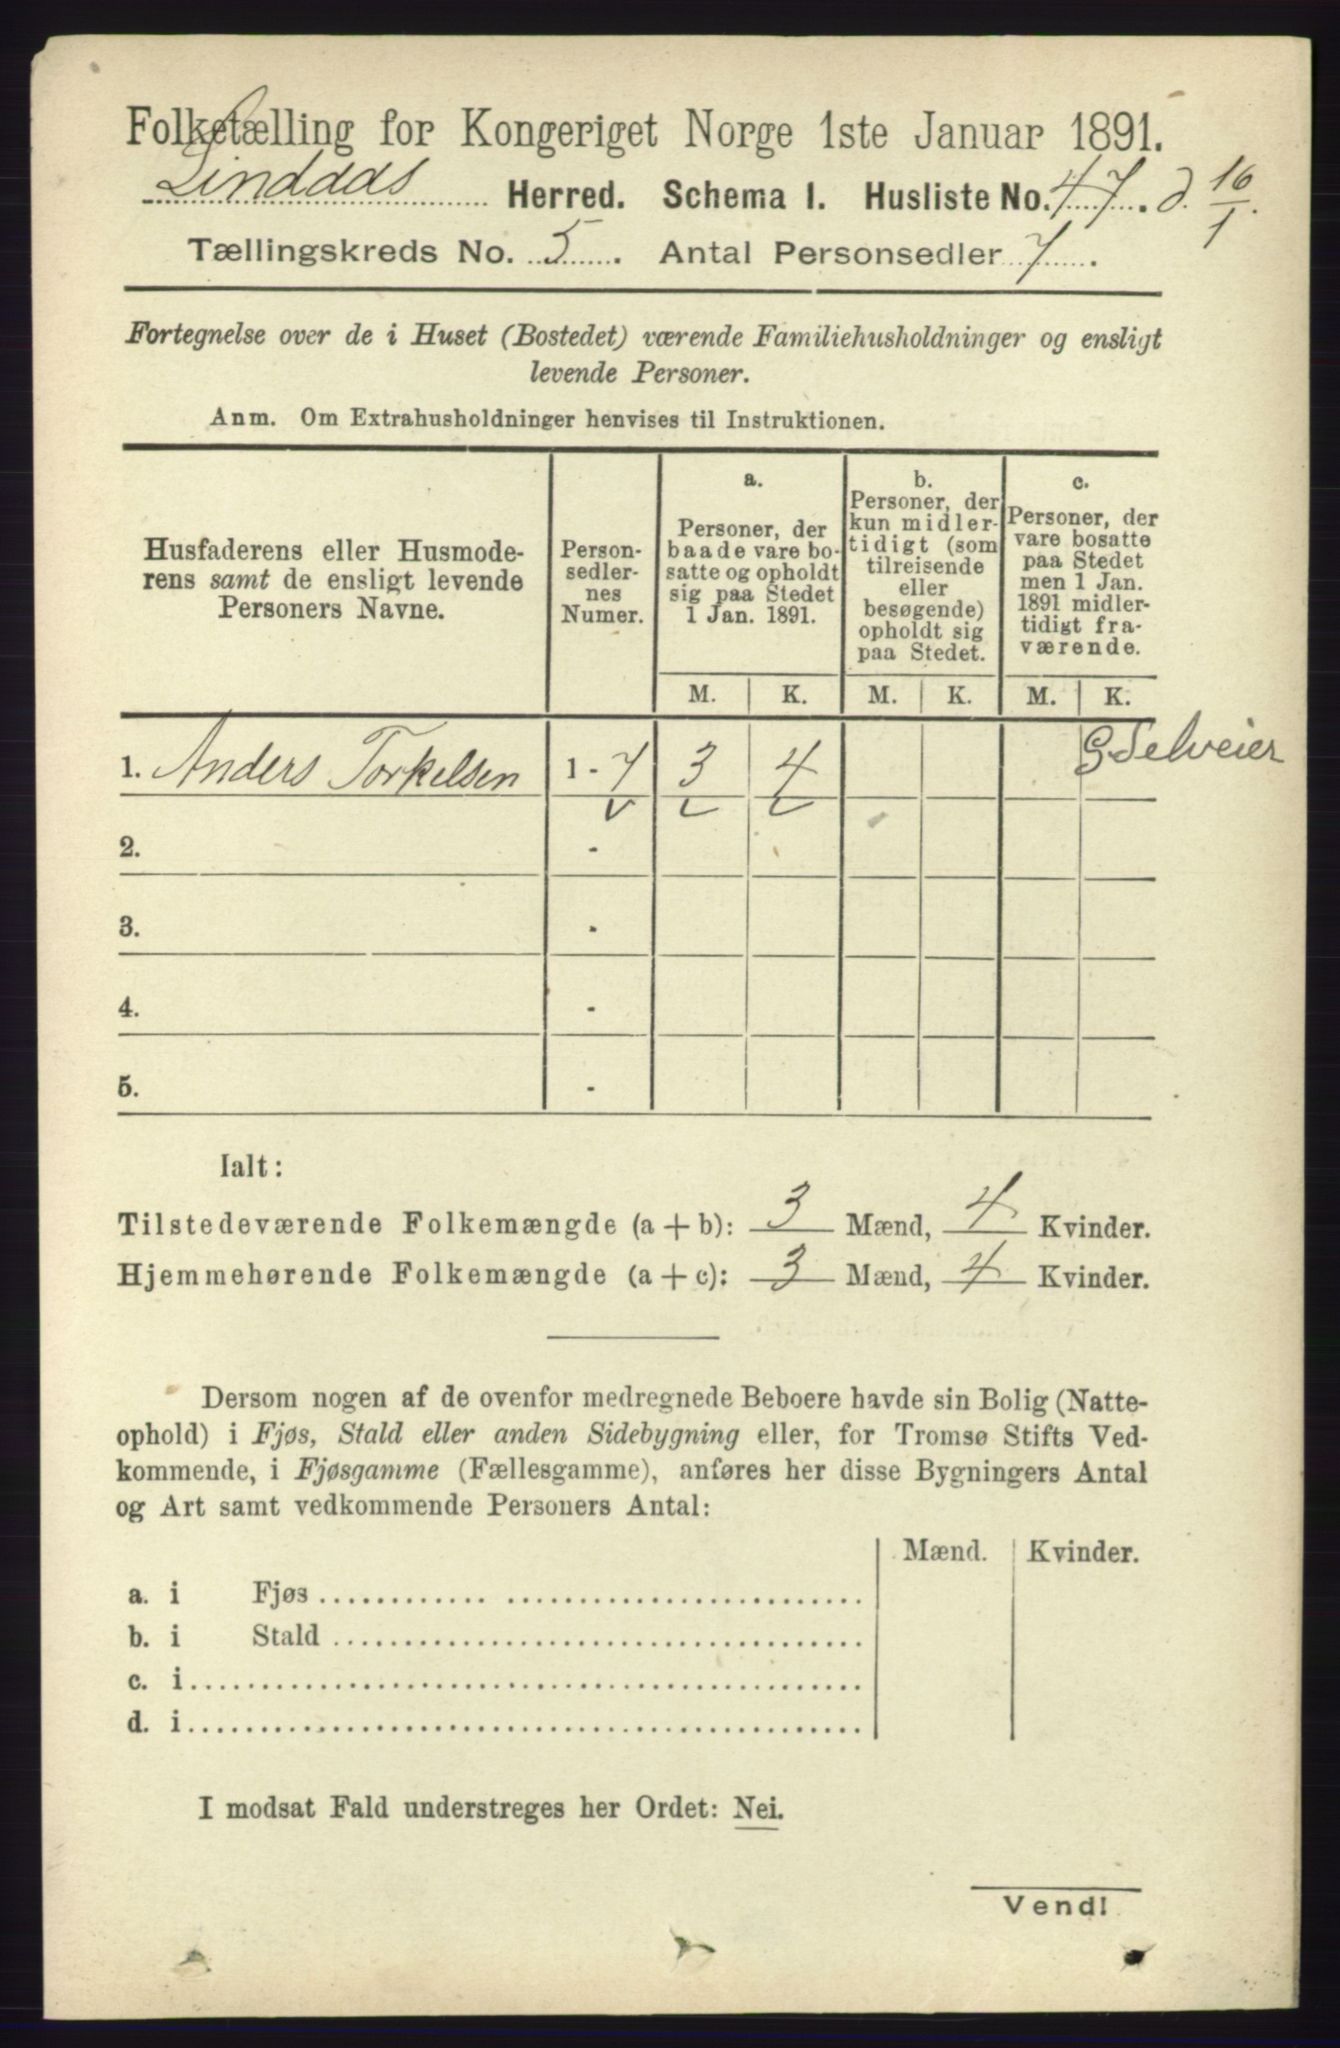 Folketælling for Kongeriget Norge 1ste Januar 1891.
Lindaas Herred. Schema I. Husliste No. 47. d. 16/1.
Tællingskreds No. 5. Antal Personsedler 7.
Fortegnelse over de i Huset (Bostedet) værende Familiehusholdninger og ensligt
levende Personer.
Anm. Om Extrahusholdninger henvises til Instruktionen.
Husfaderens eller Husmode-
rens samt de ensligt levende
Personers Navne.
Person-
sedler-
nes
Numer.
a.
Personer, der
baade vare bo-
satte og opholdt
sig paa Stedet
1 Jan. 1891.
M. K.
b.
Personer, der
kun midler-
tidigt (som
tilreisende
eller
besøgende)
opholdt sig
paa Stedet.
M. K.
c.
Personer, der
vare bosatte
paa Stedet
men 1 Jan.
1891 midler-
tidigt fra-
værende.
M. K.
1. Anders Torkelsen 1 - 7 3 4 G Selveier
2. -
3. -
4. -
5. -
Ialt:
Tilstedeværende Folkemængde (a + b): 3 Mænd, 4 Kvinder.
Hjemmehørende Folkemængde (a + c): 3 Mænd, 4 Kvinder.
Dersom nogen af de ovenfor medregnede Beboere havde sin Bolig (Natte-
ophold) i Fjøs, Stald eller anden Sidebygning eller, for Tromsø Stifts Ved-
kommende, i Fjøsgamme (Fællesgamme), anføres her disse Bygningers Antal
og Art samt vedkommende Personers Antal:
Mænd. Kvinder.
a. i Fjøs
b. i Stald
c. i
d. i
I modsat Fald understreges her Ordet: Nei.
Vend!